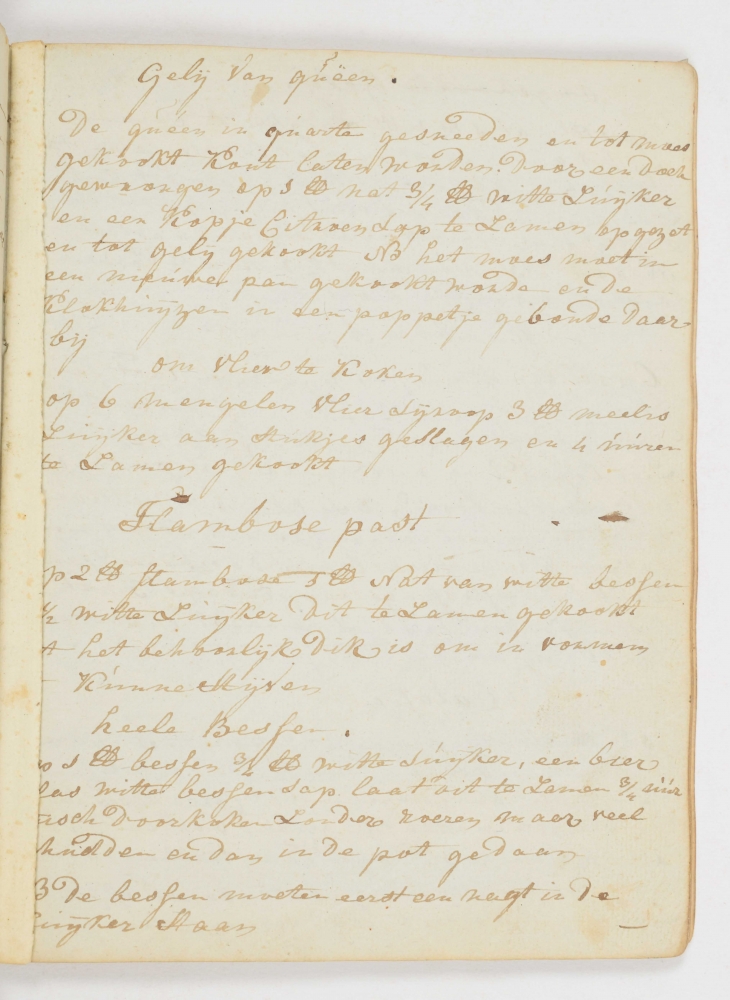 Gelij Van quëen.
De quëen in quarte gesneeden en tot moes
gekookt Kout laten worden. Door een doek
gewrongen op 1 ℔ nat 3/4 ℔ witte Súijker
en een Kopje Citroen Sap te Zamen opgezet
en tot gely gekookt NB het moes moet in
een nieúwe pan gekookt worde en de
Klokhúijzen in een poppetje gebonde daar
bij
om vlier te Koken
op 6 mengelen vlier Sijroop 3 ℔ meelis
Suijker aan stukjes geslagen en 4 úúren
te Zamen gekookt
Flambose past
p 2 ℔ flambose 1 ℔ Nat van witte bessen
1/2 witte Suijker dit te Zamen gekookt
t het behoorlijk dik is om in vormen
Kúnne Stijven
heele Bessen.
p 1 ℔ bessen 3/4 ℔ witte súijker, een bier
las witte bessen sap laat dit te Zamen 3/4 úúr
asch Doorkoken Zonder roeren maer veel
hudden en dan in de pot gedaan
B de bessen moeten eerst een nagt in de
uijker Staan